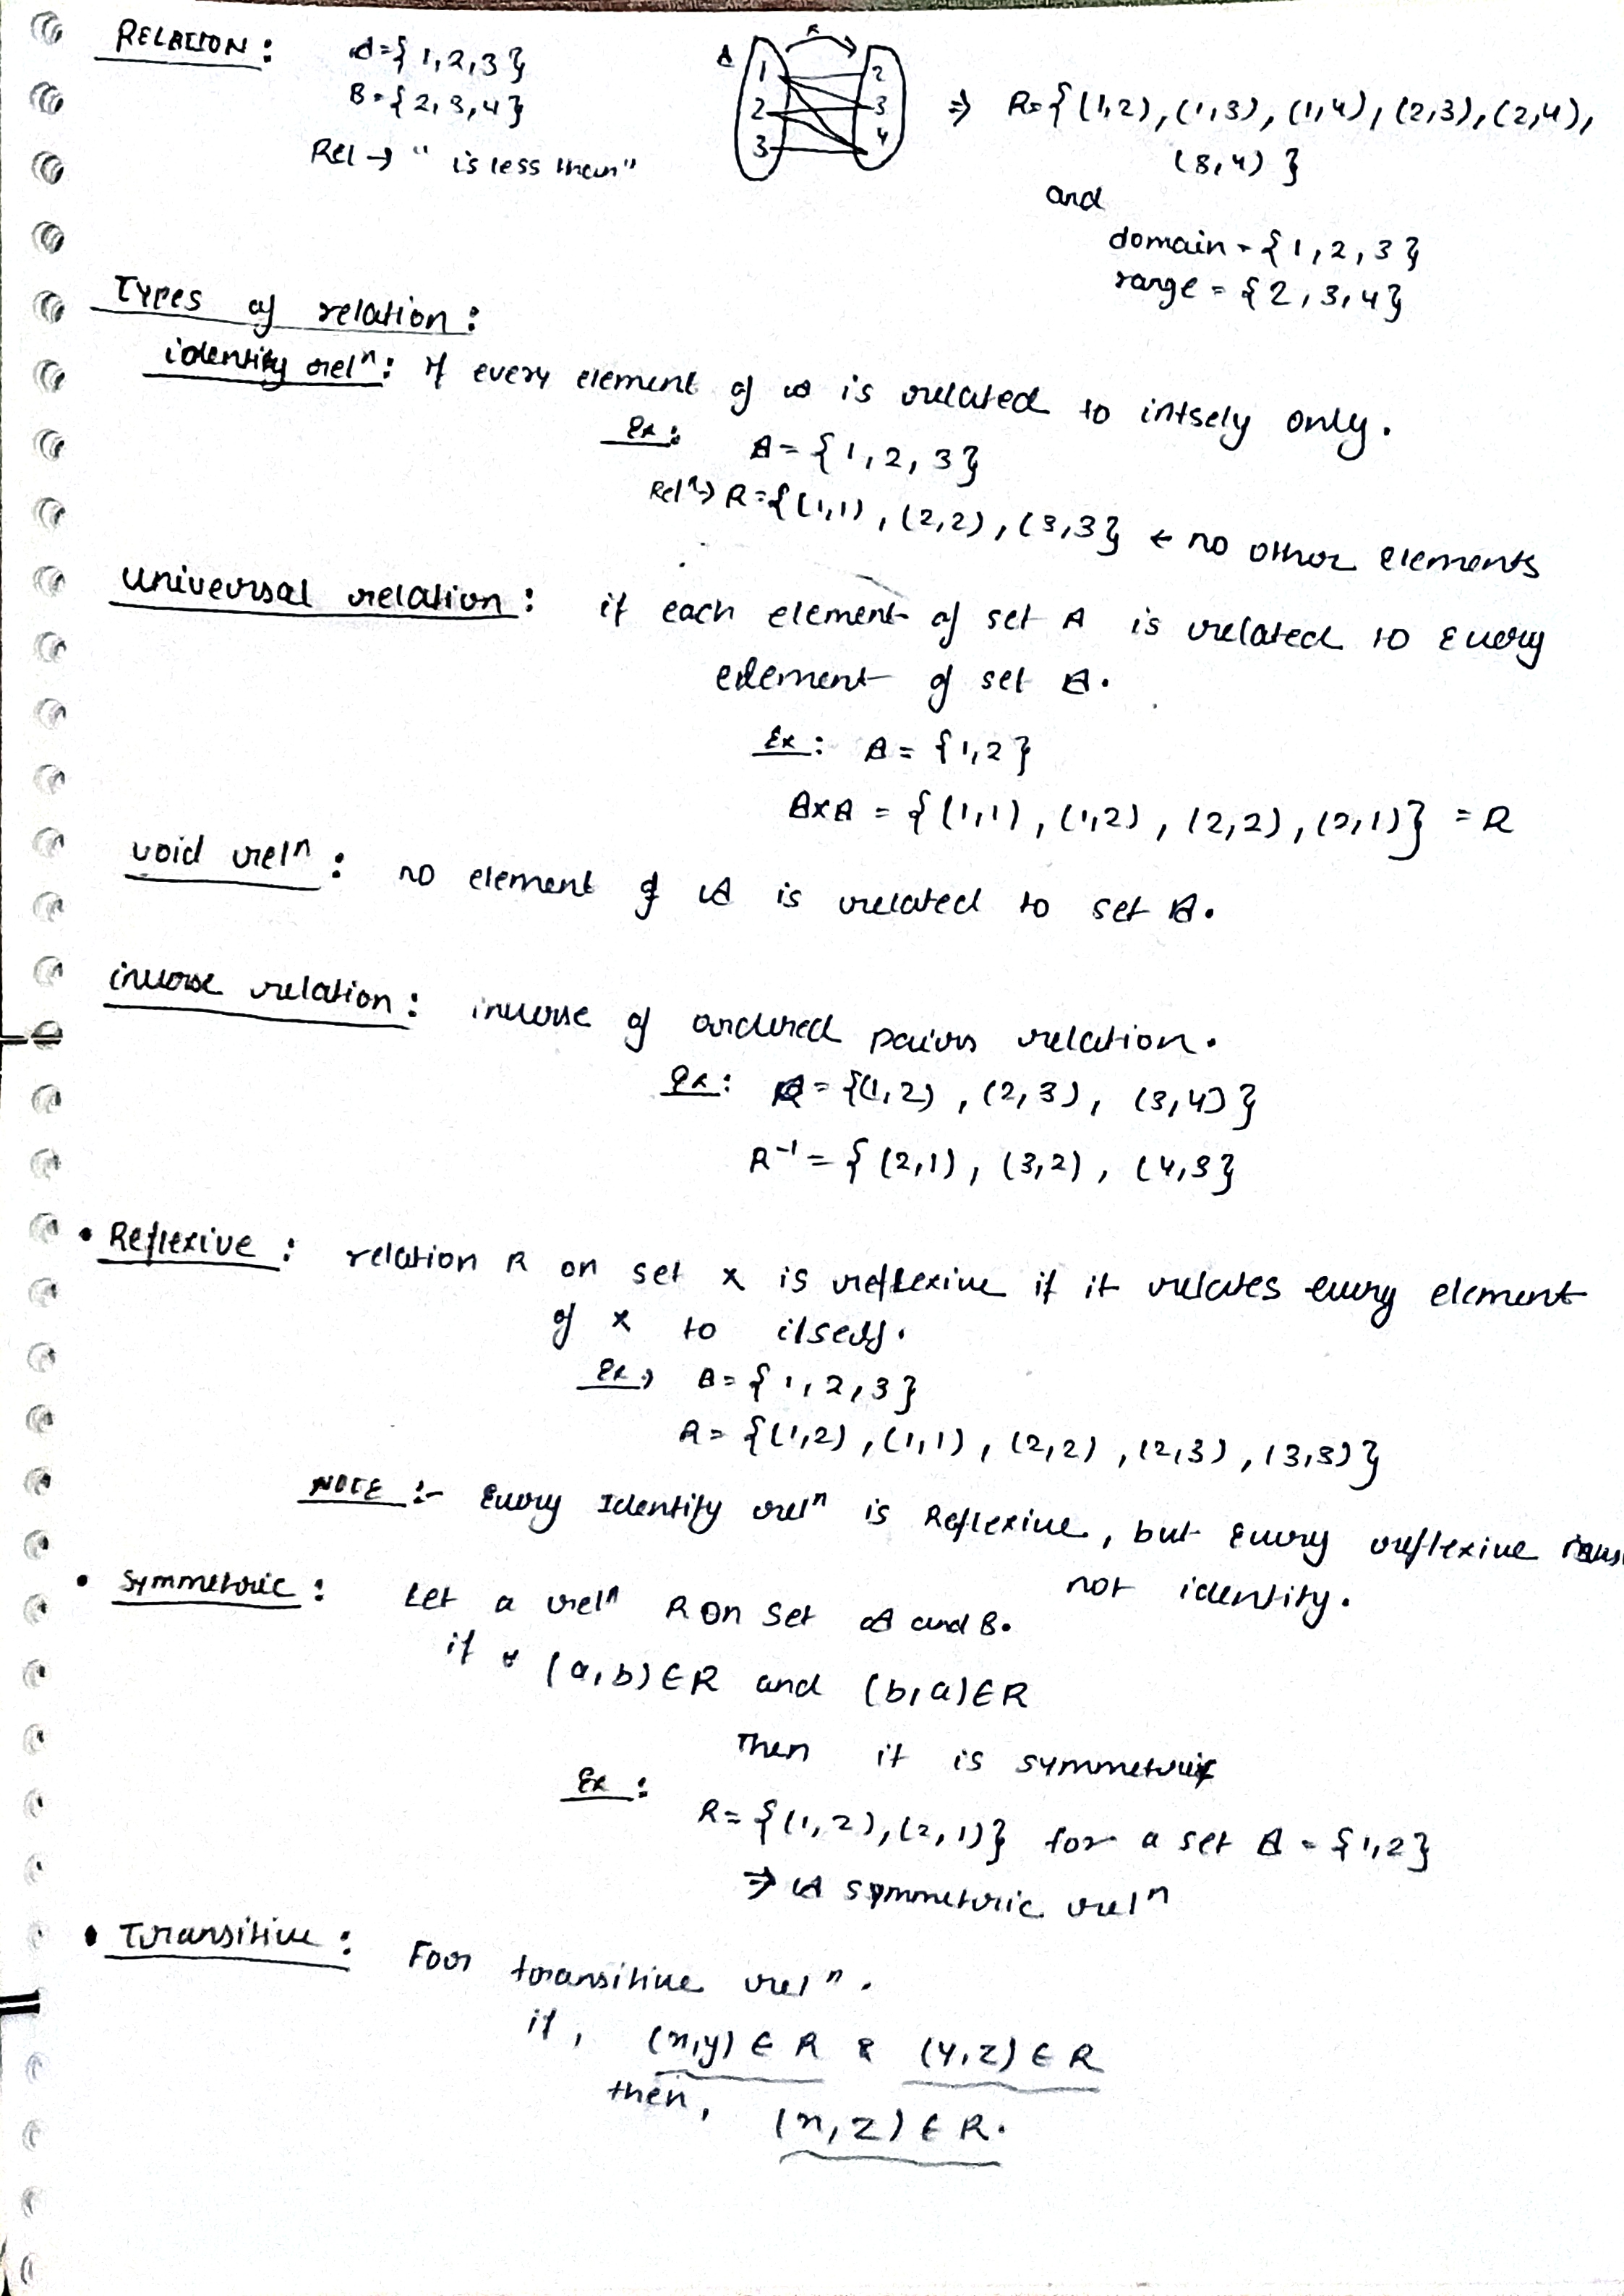 RELATION : A={ 1,2,3 }
B={ 2,3,4 }
Rel → " is less than"
A R
1 2
2 3
3 4
⇒ R={ (1,2), (1,3), (1,4), (2,3), (2,4),
(3,4) }
and
domain = { 1,2,3 }
range = { 2,3,4 }
Types of relation :
identity relⁿ : if every element of A is related to intsely only.
Ex : A = { 1,2,3 }
Relⁿ→ R={ (1,1) , (2,2) , (3,3 } ← no other elements
universal relation : if each element of set A is related to every
element of set A.
Ex : A = { 1,2 }
A×A = { (1,1) , (1,2) , (2,2) , (2,1) } = R
void relⁿ : no element of A is related to set A.
inverse relation : inverse of ordered pairs relation.
Ex : R = {(1,2) , (2,3) , (3,4) }
R⁻¹ = { (2,1) , (3,2) , (4,3 }
• Reflexive : relation R on set x is reflexive if it relates every element
of x to itself.
Ex → A = { 1,2,3 }
R = { (1,2) , (1,1) , (2,2) , (2,3) , (3,3) }
NOTE :- Every Identity relⁿ is Reflexive, but Every reflexive
not identity.
• Symmetric : Let a relⁿ R on Set A and B.
if (a,b) ∈ R and (b,a) ∈ R
Then it is symmetric
Ex : R = { (1,2), (2,1) } for a set A = { 1,2 }
⇒ A symmetric relⁿ
• Transitive : For transitive relⁿ.
if, (x,y) ∈ R & (y,z) ∈ R
then, (x,z) ∈ R.